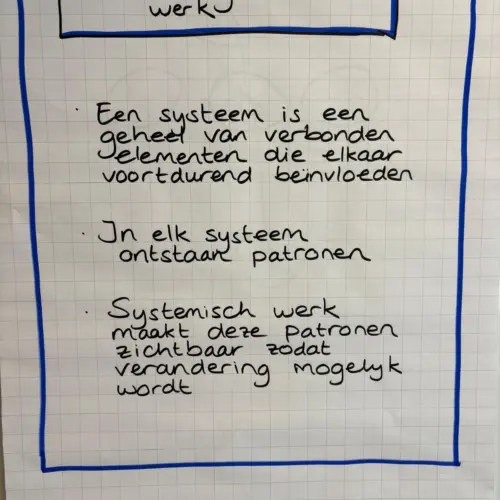 werk
· Een systeem is een
geheel van verbonden
elementen die elkaar
voortdurend beïnvloeden
· In elk systeem
ontstaan patronen
· Systemisch werk
maakt deze patronen
zichtbaar zodat
verandering mogelyk
wordt